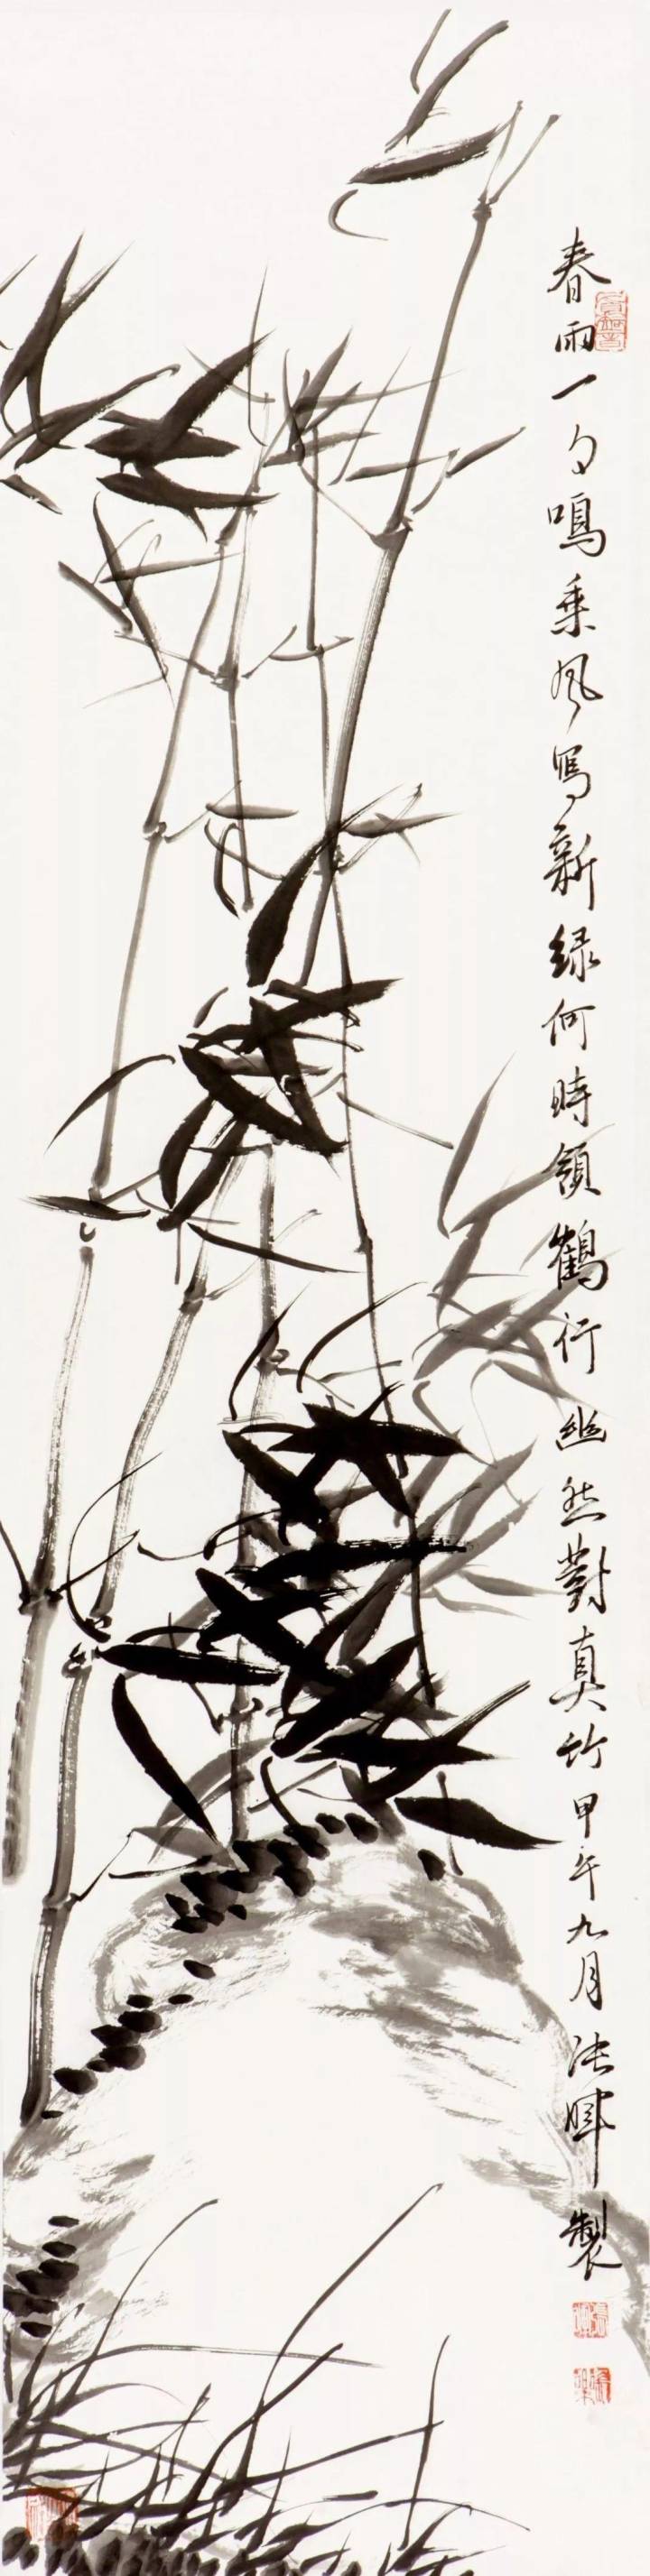 春雨一夕鳴乘風寫新綠何時領鶴行幽然對真竹甲午九月張暉製